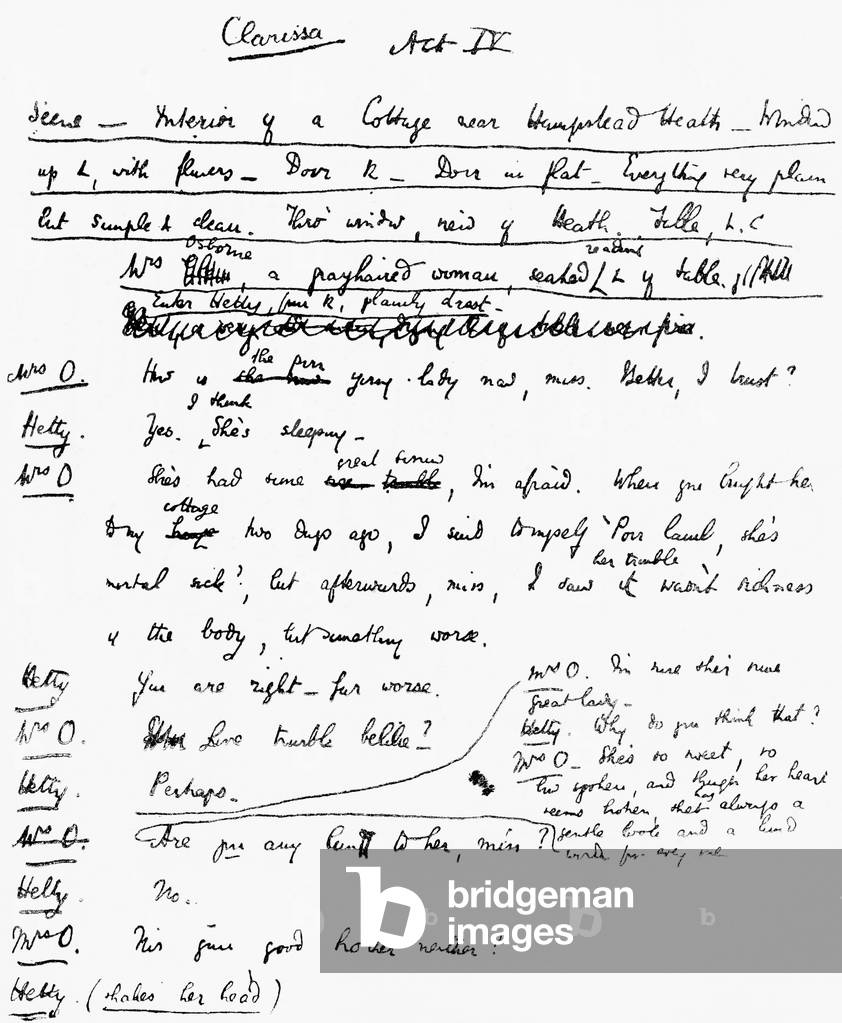 Clarissa Act IV
Scene — Interior of a Cottage near Hampstead Heath — Window
up L, with flowers — Door R — Door in flat — Everything very plain
but simple & clean. Thro' window, view of Heath. Table, L.C
Osborne reading
Mrs , a grayhaired woman, seated L of table.
Enter Hetty, from R, plainly drest.
the poor
Mrs O. How is young lady now, miss. Better, I trust?
I think
Hetty. Yes. She's sleeping —
great sorrow
Mrs O She's had some , I'm afraid. When you brought her
cottage
to my two days ago, I said to myself 'Poor lamb, she's
her trouble
mortal sick', but afterwards, miss, I saw it wasn't sickness
of the body, but something worse.
Hetty You are right — far worse.
Mrs O. Love trouble belike?
Hetty. Perhaps —
Mrs O. I'm sure she's some
great lady —
Hetty. Why do you think that?
Mrs O — She's so sweet, so
low spoken, and though her heart
seems broken, she has always a
gentle look and a kind
word for every one
Mrs O. Are you any kin to her, miss?
Hetty. No.
Mrs O. Nor your good brother neither?
Hetty. (shakes her head)
b bridgeman
images